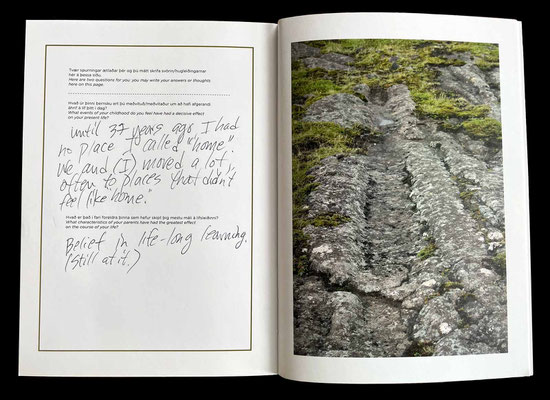 Tvær spurningar ætlaðar þér og þú mátt skrifa svörin/hugleiðingarnar
hér á þessa síðu.
Here are two questions for you; you may write your answers or thoughts
here on this page.
Hvað úr þinni bernsku ert þú meðvituð/meðvitaður um að hafi afgerandi
áhrif á líf þitt í dag?
What events of your childhood do you feel have had a decisive effect
on your present life?
Until 37 years ago, I had
no place I called "home."
We and (I) moved a lot,
often to places that didn't
feel like "home."
Hvað er það í fari foreldra þinna sem hefur skipt þig mestu máli á lífsleiðinni?
What characteristics of your parents have had the greatest effect
on the course of your life?
Belief in life-long learning.
(Still at it.)